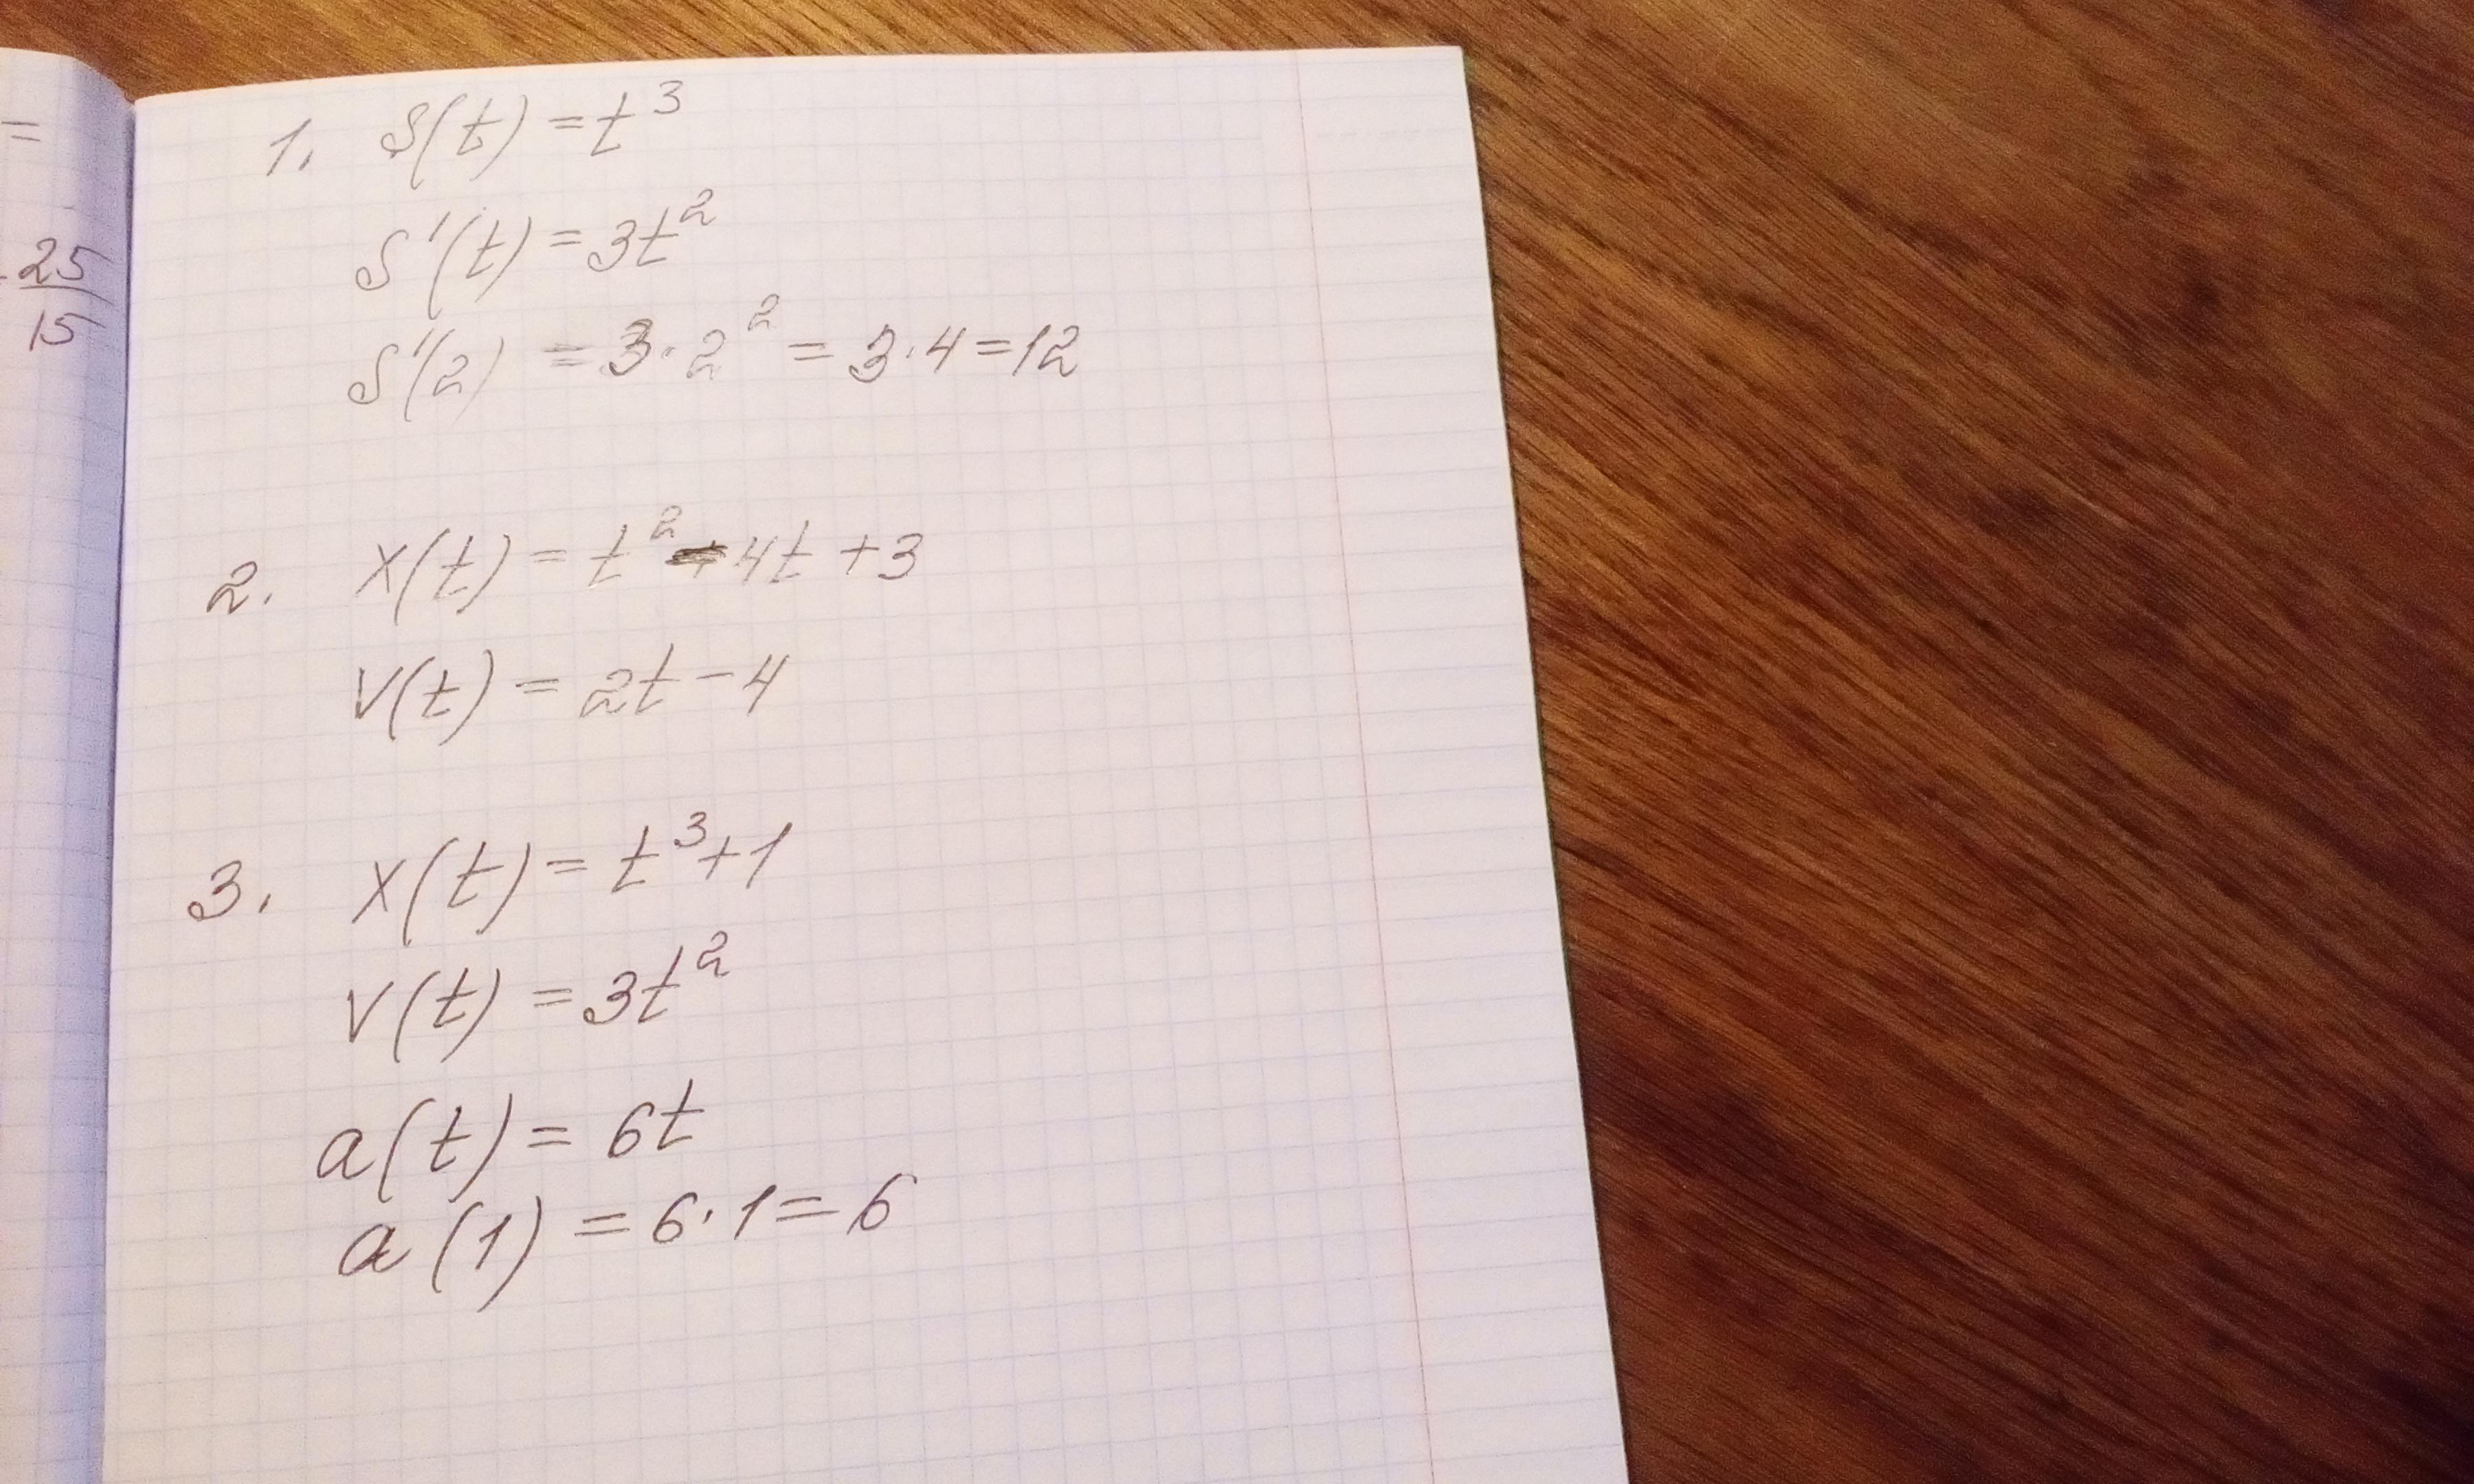 =
25
15
1. S(t) = t³
S'(t) = 3t²
S'(2) = 3·2² = 3·4 = 12
2. x(t) = t² - 4t + 3
v(t) = 2t - 4
3. x(t) = t³ + 1
v(t) = 3t²
a(t) = 6t
a(1) = 6·1 = 6